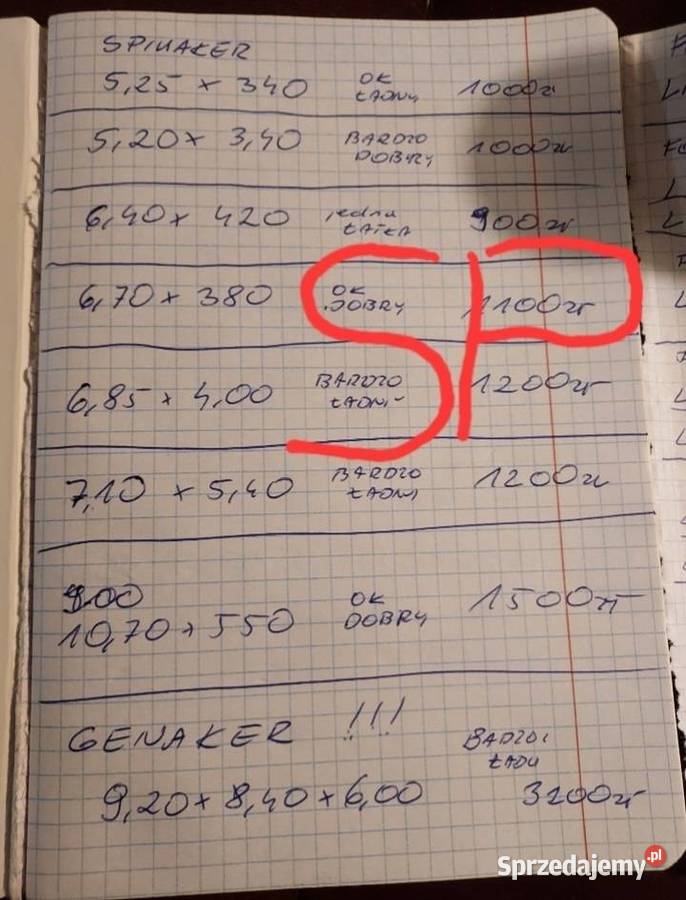 SPINAKER
5,25 x 340 OK ŁADNY 1000zł
5,20 x 3,40 BARDZO DOBRY 1000zł
6,40 x 420 jedna ŁATKA 900zł
6,70 x 380 OK DOBRY 1100zł
SP
6,85 x 4,00 BARDZO ŁADNY 1200zł
7,10 x 5,40 BARDZO ŁADNY 1200zł
900
10,70 x 550 OK DOBRY 1500zł
GENAKER !!!
BARDZO ŁADN
9,20 x 8,40 x 6,00 3200zł
Sprzedajemy.pl